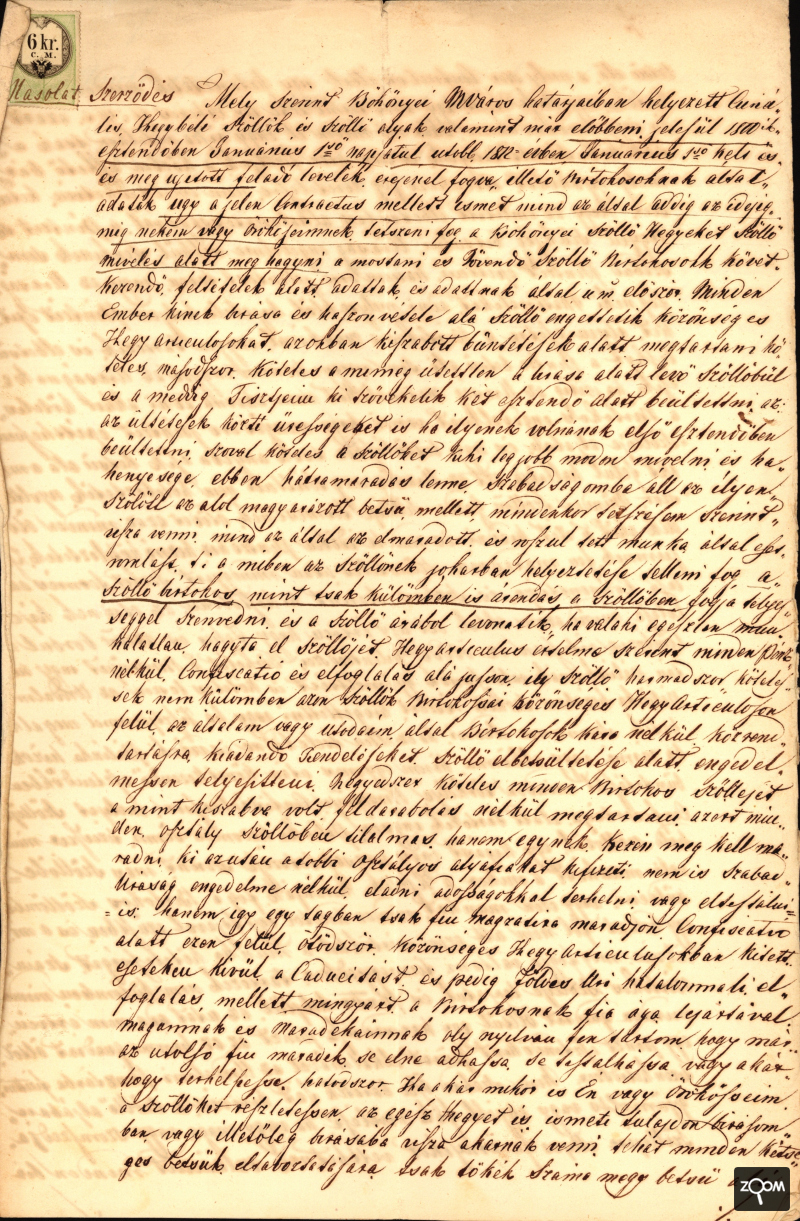 6 kr.
C. M.
Másolat
Szerződés Mely szerint Böhönyei MVáros határjaiban helyezett
lis, Hegybéli Szöllők, is Szöllő alyak, valamint már előbbeni, jelesül 1800
esztendőben Januárius 1ső napjatul utobb, 1812 évben Januárius 1ső
és meg ujétott feladó levelek, erejenel fogva, illető Birtokosoknak által
adattak ugy a jelen Contractus mellett ismét mind az által addig az ideig
mig nekem vagy Örökőseimnek tetszeni fog, a Böhönyei Szöllő Hegyeket Szöllő
mivelés alatt meg hagyni a mostani és Jövendő Szöllő Birtokosokk követ
kezendő, feltételek alatt, adattak, és adattnak által u.m. először. Minden
Ember kinek birása és haszonvétele alá Szöllő engettetik közönséges
Hegy Articulusokat, azokban kiszabott büntétések alatt megtartani kö
teles, másodszor. Köteles a mémég ületetlen a birása alatt levő Szöllőbül
és a meddig Tisztjeim ki Szövetelik két esztendő alatt beültettni, az
az ültetések közti ürességeket is ha ilyenek volnának első esztendőben
beültettni, szoval köteles a Szöllőket kiki legjobb modon mivelni és ha
henyesége, ebben hátramaradás lenne, Szabadságomba áll az ilyen
Szölőtt az alol magyarázott betsü, mellett, mindenkor tetszésem szerint
visza venni, mind az által az elmaradott, és roszul tett munka által
romláss, t.i a miben az Szöllőnek jókarban helyeztetése telleni fog, a
Szöllő birtokos, mint tsak külömben is árendás a Szöllőben fogja telyes
séggel Szenvedni, és a Szöllő árából levonatik, ha valaki egészlen mun
kalatlan, hagyta el Szöllőjét, Hegyarticulus értelme szerint minden
nélkül, Confiscatió és elfoglalás alá jusson, ily Szöllő, harmadszor köteles
sek nem külömben azon Szöllők Birtokossai közönséges Hegy Articuluson
felül, az általam vagy utodaim által Birtokosok kára nélkül közrend
tartásra, kiadandó Rendeléseket, Szöllő elbetsültetése alatt, enged
messen telyesitteni, Negyedszer köteles minden Birtokos Szöllejét
a mint kiszabva volt, fel darabolás nélkül megtartani, azért min
den, osztály Szöllőben tilalmas, hanem egynek Kezén meg kell ma
radni, ki azután a többi osztályos atyafiakat kifizeti, nem is Szabad
Uraság engedelme nélkül, eladni adósságokkal terhelni, vagy
is, hanem igy egy tagban tsak fiu magzatira maradjon Confiscatio
alatt ezen felül, ötödször, közönséges Hegy Articulusokban kitett
eseteken kivül, a Caducitást, és pedig Földes Uri hatalommali el
foglalás, mellett mingyárt, a Birtokosnak fia ága lejártával
magamnak és Maradékaimnak oly nyilván fen tartom hogy már
az utolsó fiu maradék, se elne adhassa, se testálhassa vagy akár
hogy terhelhesse, hatodszor. Ha akár mikór is Én vagy Örökösseim
a szöllőket részletessen, az egész hegyet is, ismét tulajdon birásom
ban, vagy illetőleg birásába visza akarnák venni, tehát minden kétsé
ges betsük, eltávoztatására, tsak tökék Száma megy betsü
ZOOM